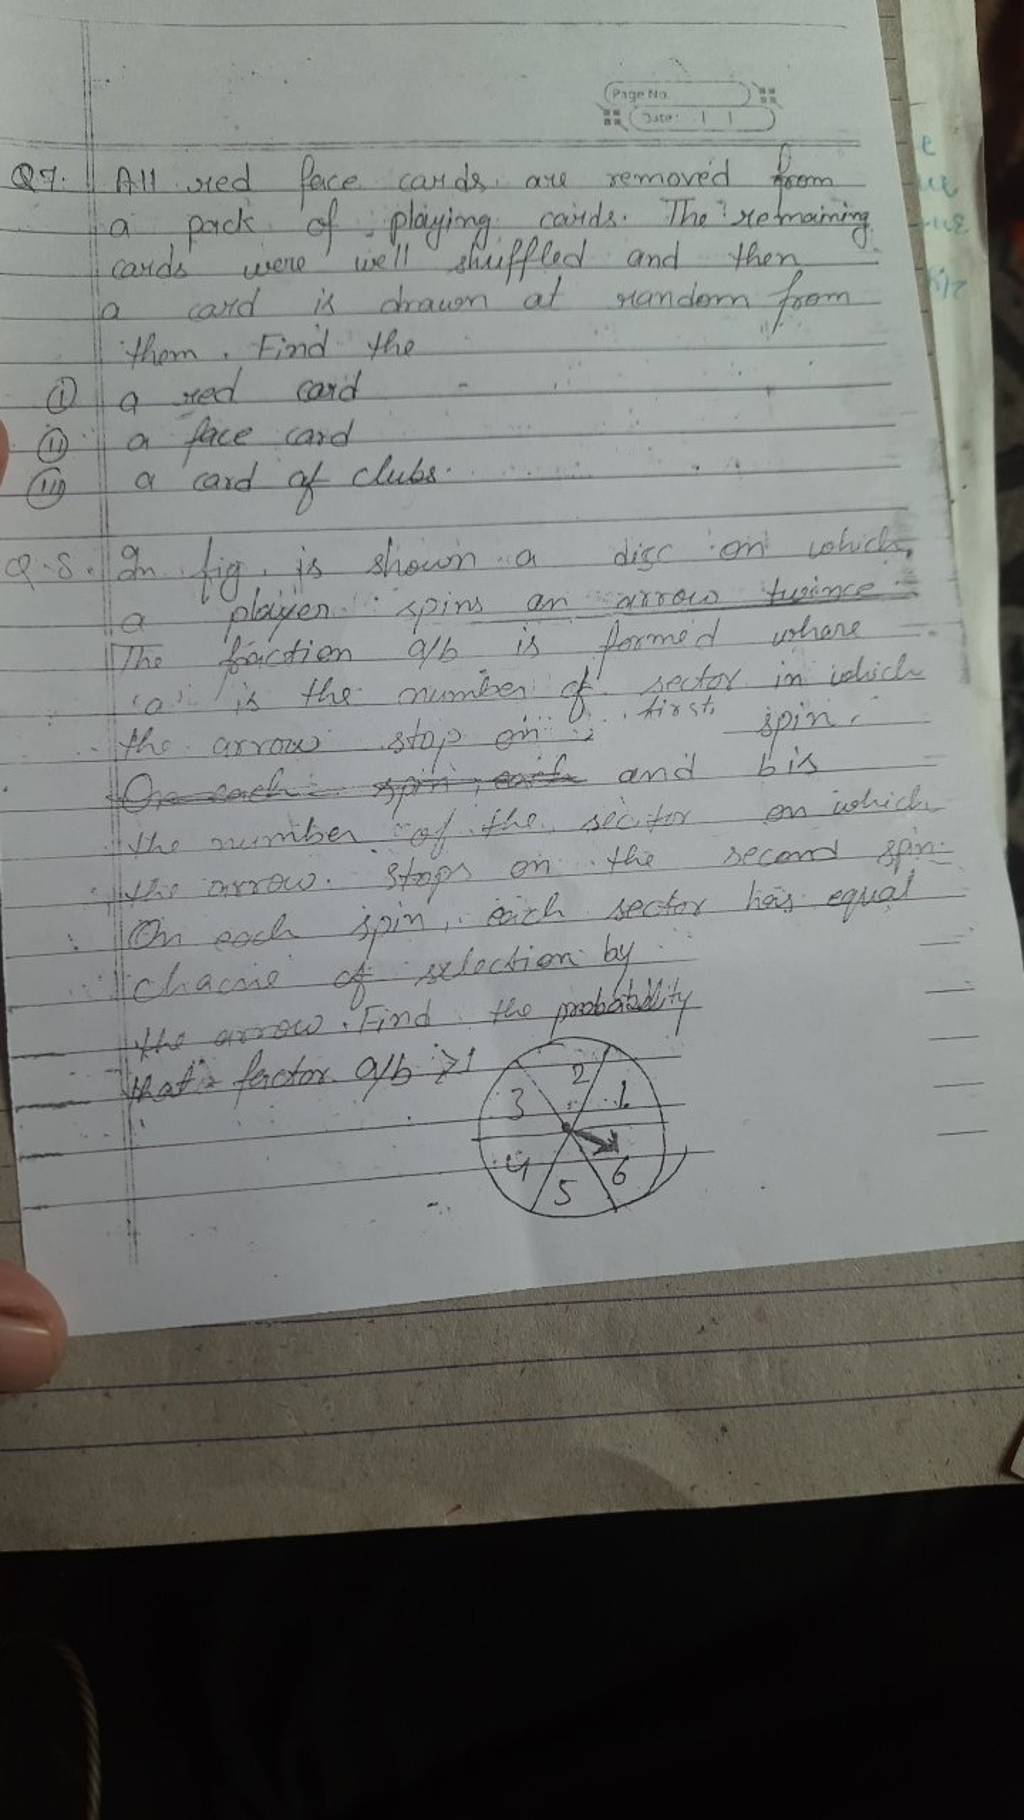 Page No.
Date: | |
Q7. All red face cards are removed from
a pack of playing cards. The remaining
cards were well shuffled and then
a card is drawn at random from
them. Find the
(i) a red card
(ii) a face card
(iii) a card of clubs.
Q.8. In fig. is shown a disc on which
a player spins an arrow twince
The fraction a/b is formed where
'a' is the number of sector in which
the arrow stop on first spin.
On each spin, each and b is
the number of the sector on which
the arrow. stops on the second spin.
On each spin, each sector has equal
chacne of selection by
the arrow. Find the probability
that factor a/b >1
2
3
1
4
6
5